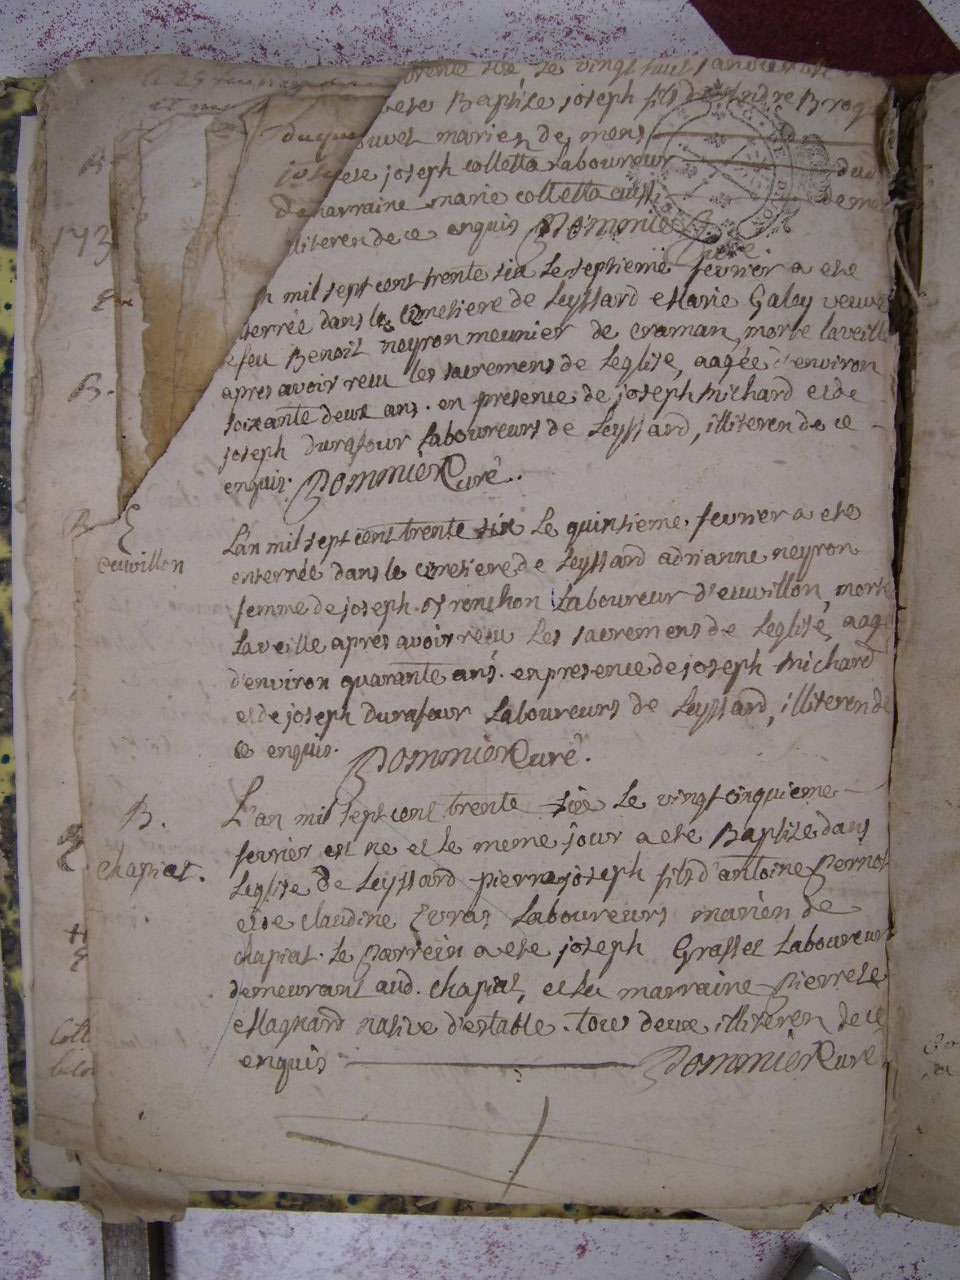 trente six, le vingt huit janvier
ete Baptise joseph fils de
marien de mens
ete joseph colletta Laboureur
marraine marie colletta aussi
illiteren de ce enquis Dommier
Curé
mil sept cent trente six Le septieme fevrier a ete
terrée dans le Cemetiere de Leyssard Marie Galey veuve
feu Benoit neyron meunier de craman, morte laveille
apres avoir recu les sacremens de Leglise, aagée d'environ
soixante deux ans. en presence de joseph Michard et de
joseph durafour Laboureurs de Leyssard, illiteren de ce
enquis. Dommier Curé.
E
euvillon
L'an mil sept cent trente six Le quinsieme, fevrier a ete
enterrée dans le cemetiere de Leyssard adrianne neyron
femme de joseph Laboureur d'euvillon, morte
Laveille apres avoir recu Les sacremens de Leglise, aagé
d'environ quarante ans. en presence de joseph Michard
et de joseph Durafour Laboureurs de Leyssard, illiteren de
ce enquis. Dommier Curé.
B.
chapiat.
L'an mil sept cent trente six Le vingt cinquieme
fevrier est né et le meme jour a ete Baptise dans
Leglise de Leyssard pierre joseph fils d'antoine Pernot
et de claudine Evras Laboureurs marien de
chapiat. Le Parrein a ete joseph Grasset Laboureur
demeurant aud. chapiat, et la marraine Pierrete
Magnard native d'estable. tous deux illiteren de ce
enquis Dommier Curé